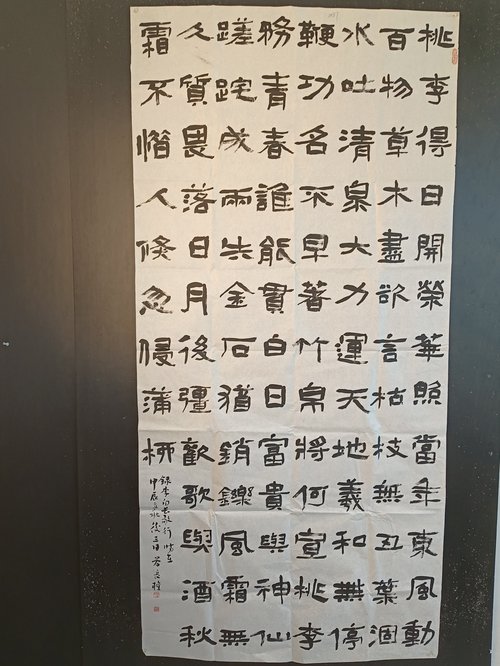 桃李得日開榮華照當年東風動
百物草木盡欲言枯枝無丑葉涸
水吐清泉大力運天地羲和無停
鞭功名不早著竹帛將何宣桃李
務青春誰能貫白日富貴與神仙
蹉跎成兩失金石猶銷鑠風霜無
久質畏落日月後彊歡歌與酒秋
霜不惜人倏忽侵蒲柳
錄李白長歌行
甲辰